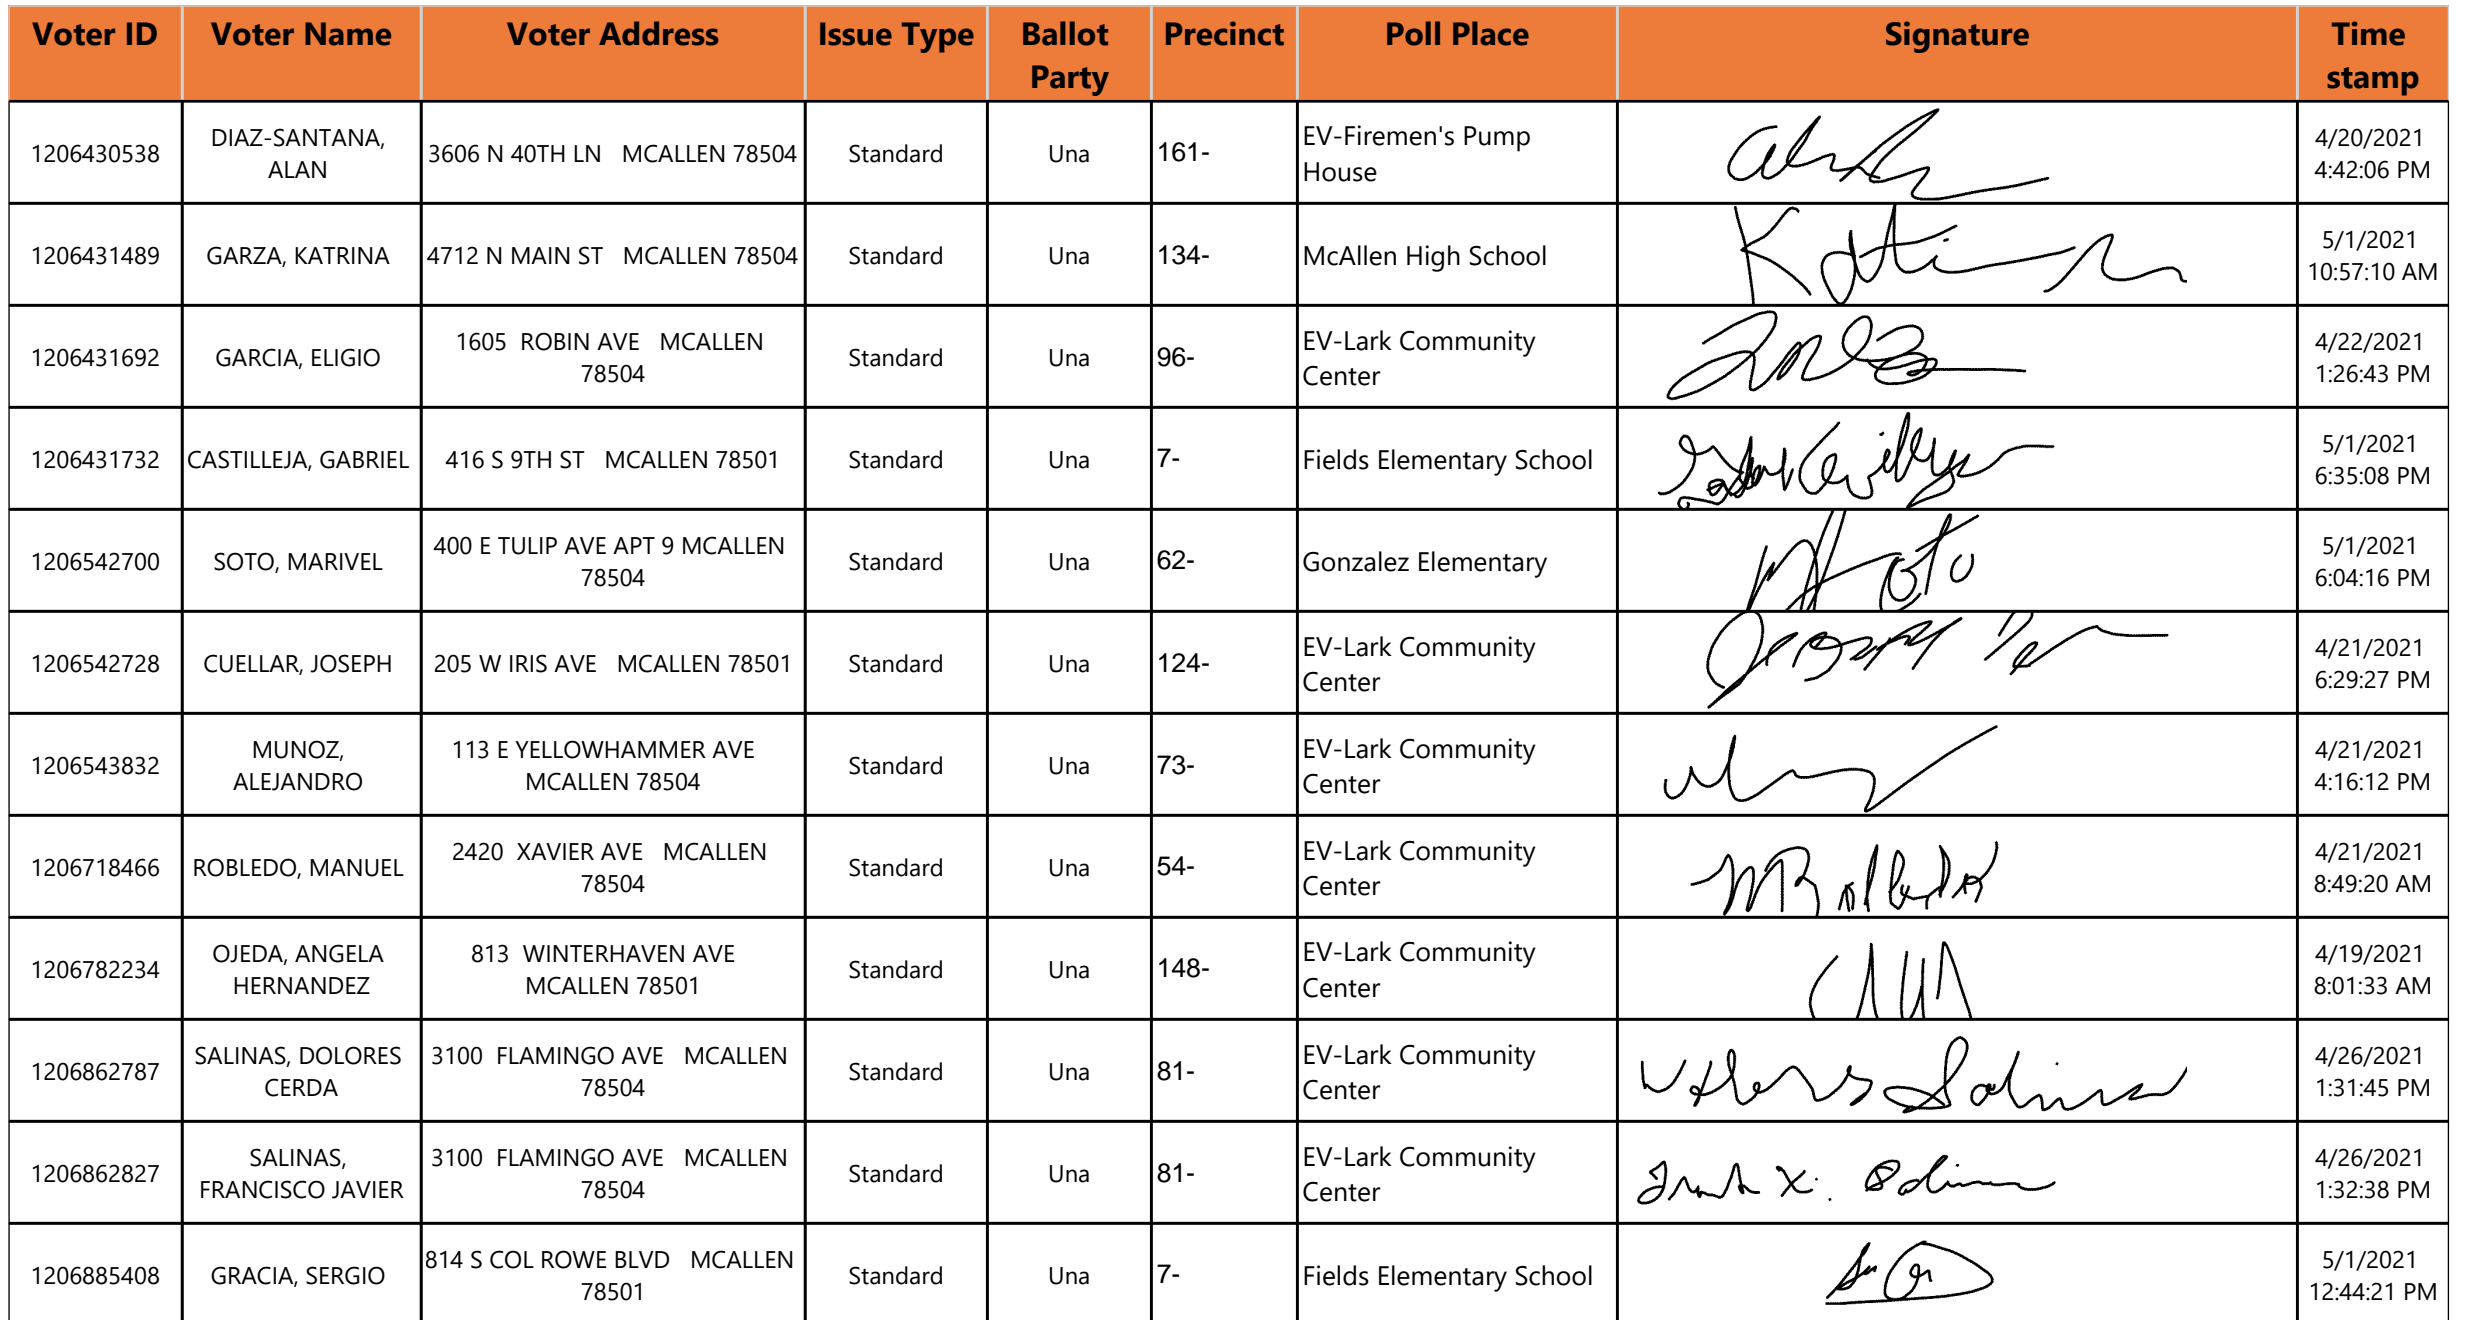 Voter ID Voter Name Voter Address Issue Type Ballot Party Precinct Poll Place Signature Time stamp
1206430538 DIAZ-SANTANA, ALAN 3606 N 40TH LN MCALLEN 78504 Standard Una 161- EV-Firemen's Pump House 4/20/2021 4:42:06 PM
1206431489 GARZA, KATRINA 4712 N MAIN ST MCALLEN 78504 Standard Una 134- McAllen High School 5/1/2021 10:57:10 AM
1206431692 GARCIA, ELIGIO 1605 ROBIN AVE MCALLEN 78504 Standard Una 96- EV-Lark Community Center 4/22/2021 1:26:43 PM
1206431732 CASTILLEJA, GABRIEL 416 S 9TH ST MCALLEN 78501 Standard Una 7- Fields Elementary School 5/1/2021 6:35:08 PM
1206542700 SOTO, MARIVEL 400 E TULIP AVE APT 9 MCALLEN 78504 Standard Una 62- Gonzalez Elementary 5/1/2021 6:04:16 PM
1206542728 CUELLAR, JOSEPH 205 W IRIS AVE MCALLEN 78501 Standard Una 124- EV-Lark Community Center 4/21/2021 6:29:27 PM
1206543832 MUNOZ, ALEJANDRO 113 E YELLOWHAMMER AVE MCALLEN 78504 Standard Una 73- EV-Lark Community Center 4/21/2021 4:16:12 PM
1206718466 ROBLEDO, MANUEL 2420 XAVIER AVE MCALLEN 78504 Standard Una 54- EV-Lark Community Center 4/21/2021 8:49:20 AM
1206782234 OJEDA, ANGELA HERNANDEZ 813 WINTERHAVEN AVE MCALLEN 78501 Standard Una 148- EV-Lark Community Center 4/19/2021 8:01:33 AM
1206862787 SALINAS, DOLORES CERDA 3100 FLAMINGO AVE MCALLEN 78504 Standard Una 81- EV-Lark Community Center 4/26/2021 1:31:45 PM
1206862827 SALINAS, FRANCISCO JAVIER 3100 FLAMINGO AVE MCALLEN 78504 Standard Una 81- EV-Lark Community Center 4/26/2021 1:32:38 PM
1206885408 GRACIA, SERGIO 814 S COL ROWE BLVD MCALLEN 78501 Standard Una 7- Fields Elementary School 5/1/2021 12:44:21 PM